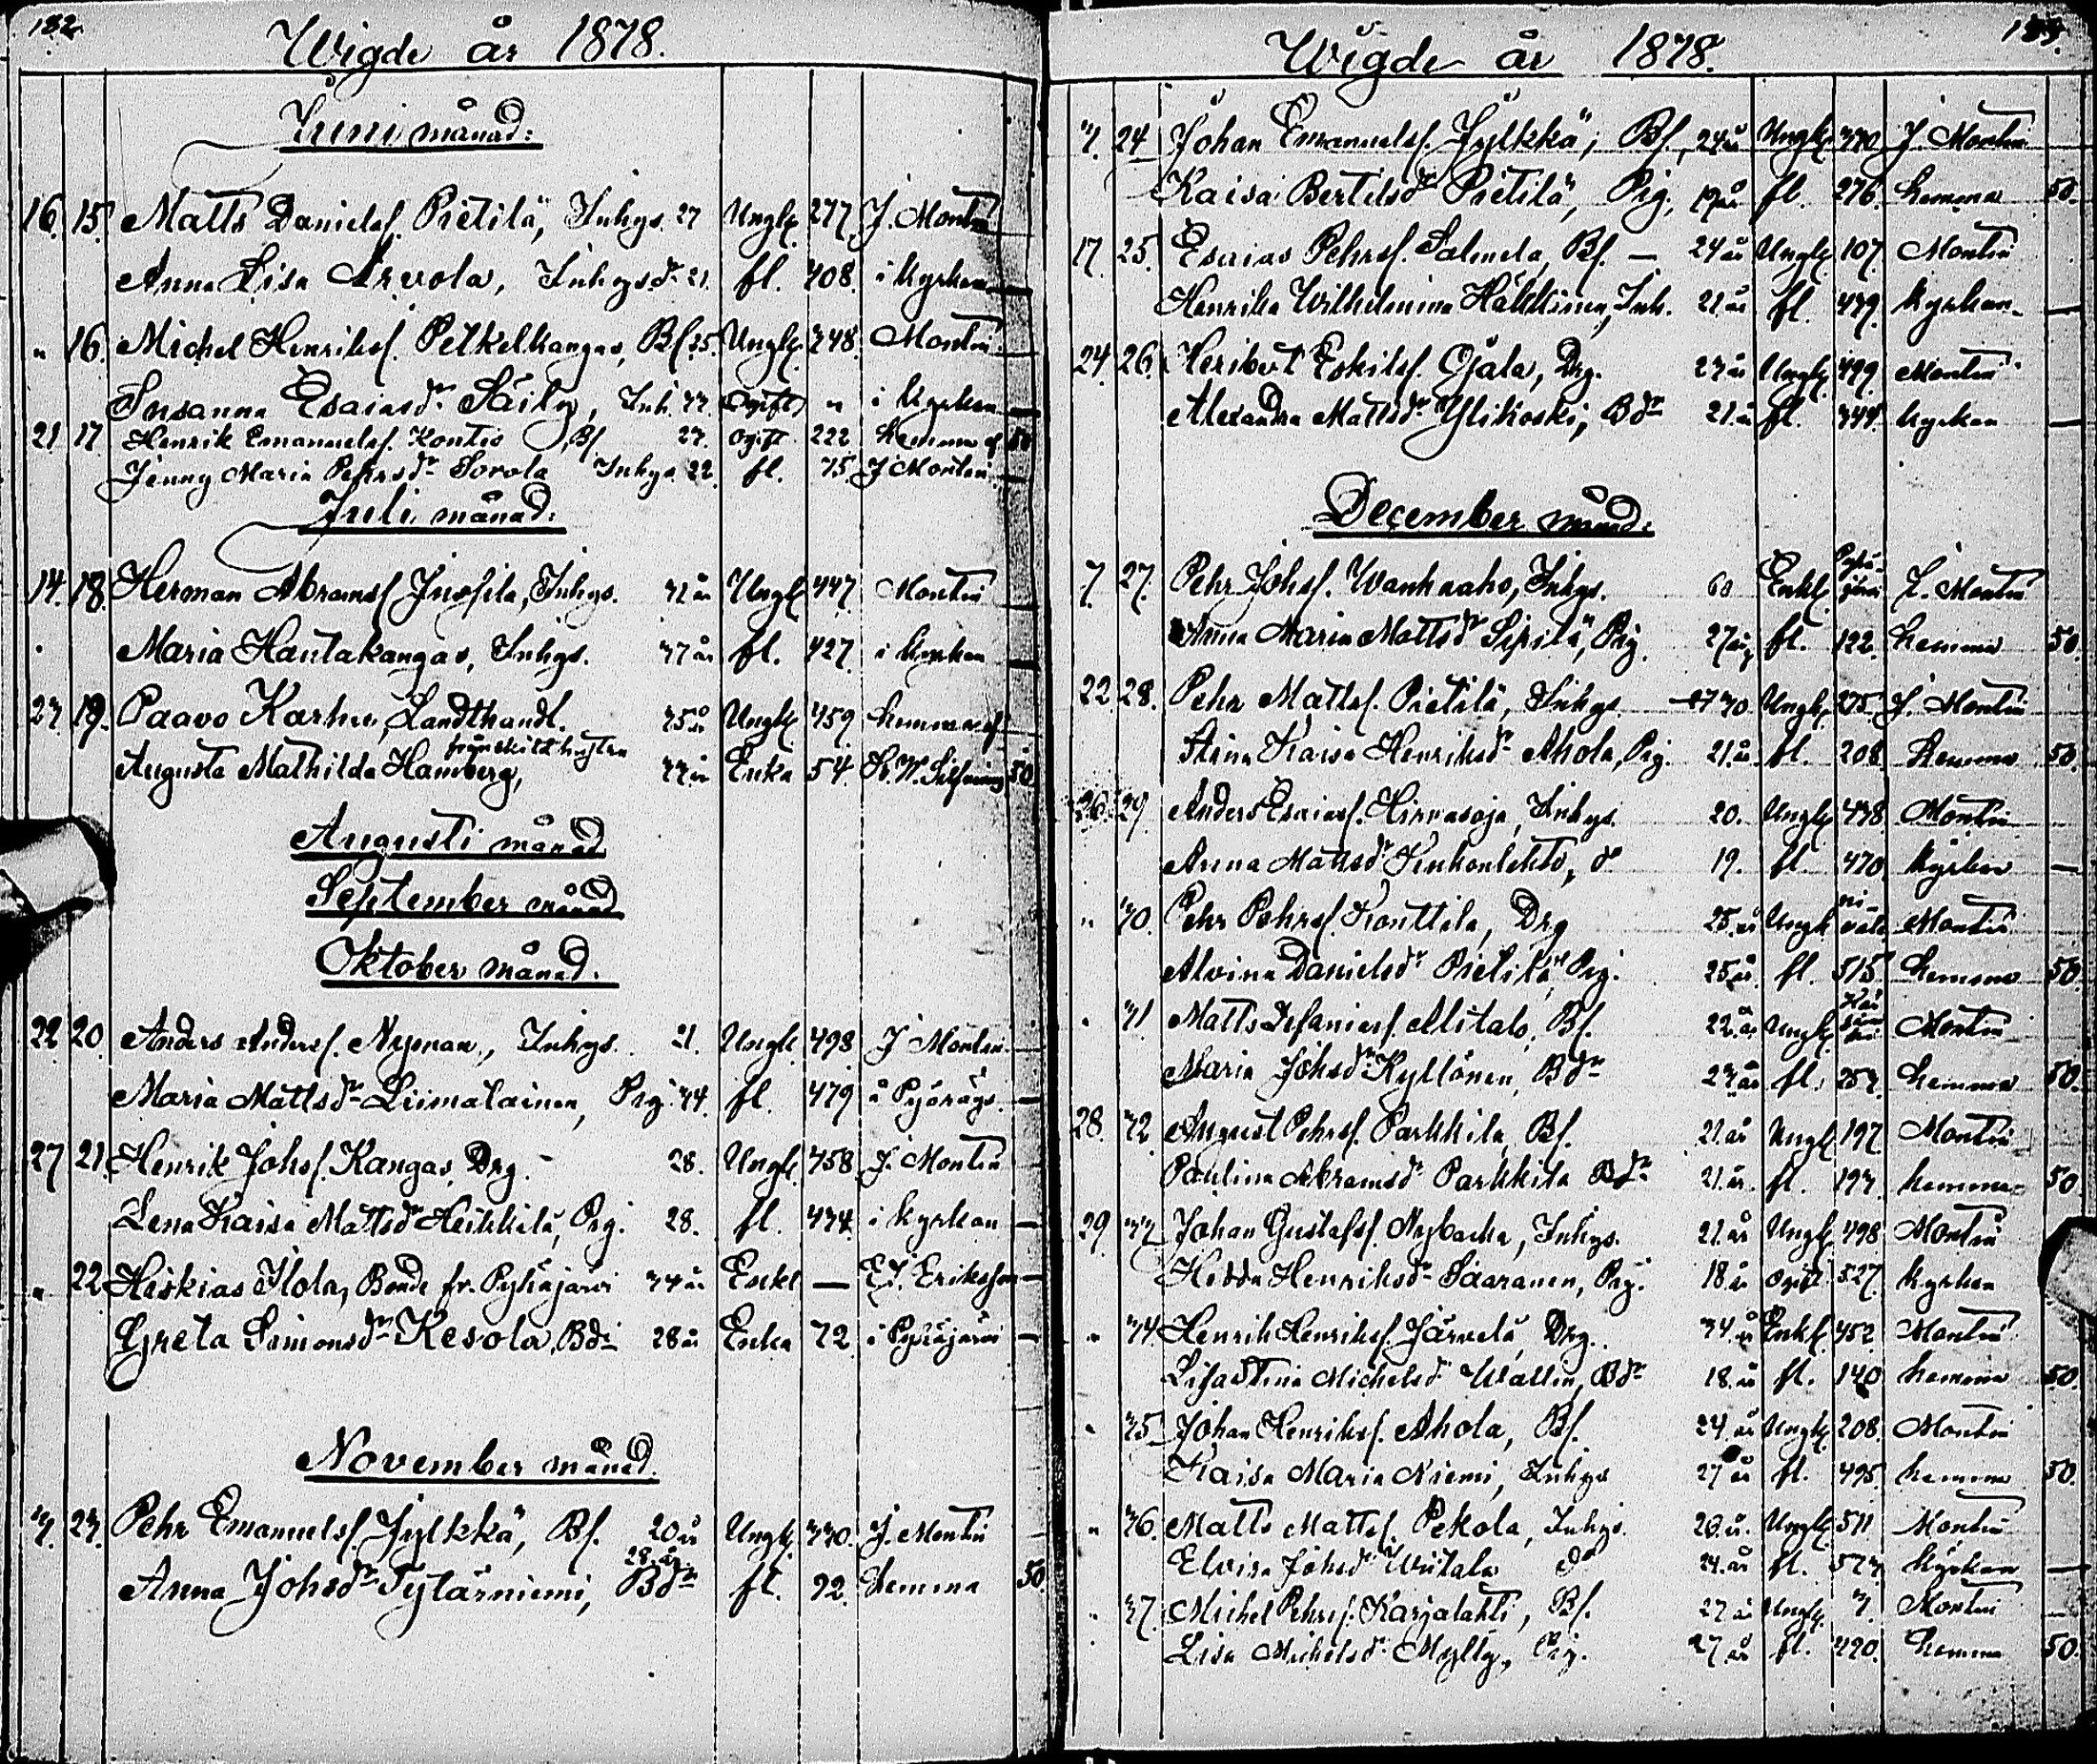 182.
Wigde år 1878.
Juni månad:
16. 15. Matts Danielsf. Pietilä, Inhys. 27 Ungk. 277. J. Montin
Anna Lisa Arvola, Inhysdr 21. fl. 408. i kyrkan —
" 16. Michel Henriksf. Petkelkangas, Bf. 25. Ungk. 348. Montin
Susanna Esaiasdr Säily, Inh. 33. Ogift " i kyrkan —
21 17 Henrik Emanuelsf. Kontio Bf 23. ogift 222 hemma af 50
Jenny Maria Pehrsdr Sorola Inhys. 22. fl. 75. J Montin
Juli månad:
14. 18. Herman Abramsf. Inhys. 31 år Ungk 447. Montin
Maria Hautakangas, Inhys. 37 år fl. 427. i kyrkan —
23. 19. Paavo Karhu, Landthandl. 35 år Ungk 459 hemma af
frånskild hustru
Augusta Mathilda Hamberg, 33 år Enka 54. 50
Augusti månad
September månad
Oktober månad.
22 20. Anders Andersf. Nyman, Inhys. 21. Ungk 498 J Montin
Maria Mattsdr Liimatainen, Pig. 34. fl. 479 —
27 21. Henrik Johsf. Kangas, Drg. 28. Ungk. 458 J. Montin
Lena Kaisa Mattsdr Heikkilä, Pig. 28. fl. 434. i kyrkan —
" 22. Heskias Ilola, Bonde fr. Pyhäjärvi 34 år Enkl — E.J. Eriksson —
Greta Simonsdr Kesola, Bdr 28 år Enka 72. i Pyhäjärvi —
November månad.
3. 23. Pehr Emanuelsf. Jylkkä, Bf. 20 år Ungk. 330. J. Montin
28 år
Anna Johsdr Pylväsniemi, Bdr fl. 92. hemma 50
183.
Wigde år 1878.
3. 24 Johan Emanuelsf. Jylkkä, Bf. 24 år Ungk. 330 J. Montin
Kaisa Bertilsdr Pietilä, Pig. 19 år fl. 276. hemma 50.
17. 25. Esaias Pehrsf. Salmela, Bf. — 24 år Ungk. 107. Montin
Henrika Wilhelmina Häkkinen, Inh. 21 år fl. 439. kyrkan —
24. 26. Heribert Eskilsf. Ojala, Drg. 23 år Ungk. 499 Montin
Alexandra Mattsdr Ylikoski, Bdr 21. år fl. 344. kyrkan —
December månad:
7. 27. Pehr Johsf. Wanhaaho, Inhys. 60 Enkl. Pyhäjärvi J. Montin
Anna Maria Mattsdr Sipilä, Pig. 27 år fl. 122. hemma 50.
22 28. Pehr Mattsf. Pietilä, Inhys. 30 Ungk. 275. J. Montin
Stina Kaisa Henriksdr Ahola, Pig. 21. år fl. 208 hemma 50.
26. 29. Anders Esaiasf. Hirvasoja, Inhys. 20. Ungk. 438. Montin
Anna Mattsdr do 19. fl. 470. kyrkan —
" 30. Pehr Pehrsf. Konttila, Drg 25. år Ungk Nivala Montin
Alvina Danielsdr Pietilä, Pig. 25 år fl. 515 hemma 50.
" 31 Matts Alitalo, Bf. 22. år Ungk. Montin
Maria Johsdr Kyllönen, Bdr 23 år fl. 253. hemma 50.
28. 32 August Pehrsf. Parkkila, Bf. 21. år Ungk 197 Montin
Paulina Abramsdr Parkkila Bdr 21. år. fl. 193. hemma 50
29. 33 Johan Gustafsf. Nybacka, Inhys. 21. år Ungk 498 Montin
Hedda Henriksdr Saaranen, Pig. 18 år ogift 527. kyrkan
" 34. Henrik Henriksf. Järvelä, Drg. 34 år Enkl. 452. Montin
Lisa Stina Michelsdr Wallin, Bdr 18. år fl. 140 hemma 50.
" 35 Johan Henriksf. Ahola, Bf. 24 år Ungk. 208. Montin
Kaisa Maria Niemi, Inhys 27 år fl. 495. hemma 50.
" 36. Matts Mattsf. Pekola, Inhys. 20. år. Ungk 511 Montin
Elvira Johsdr Wiitala do 24. år fl. 523. kyrkan —
" 37. Michel Pehrsf. Karjalahti, Bf. 27 år Ungk. 3. Montin
Lisa Michelsdr Mylly, Pig. 27 år fl. 420. hemma 50.